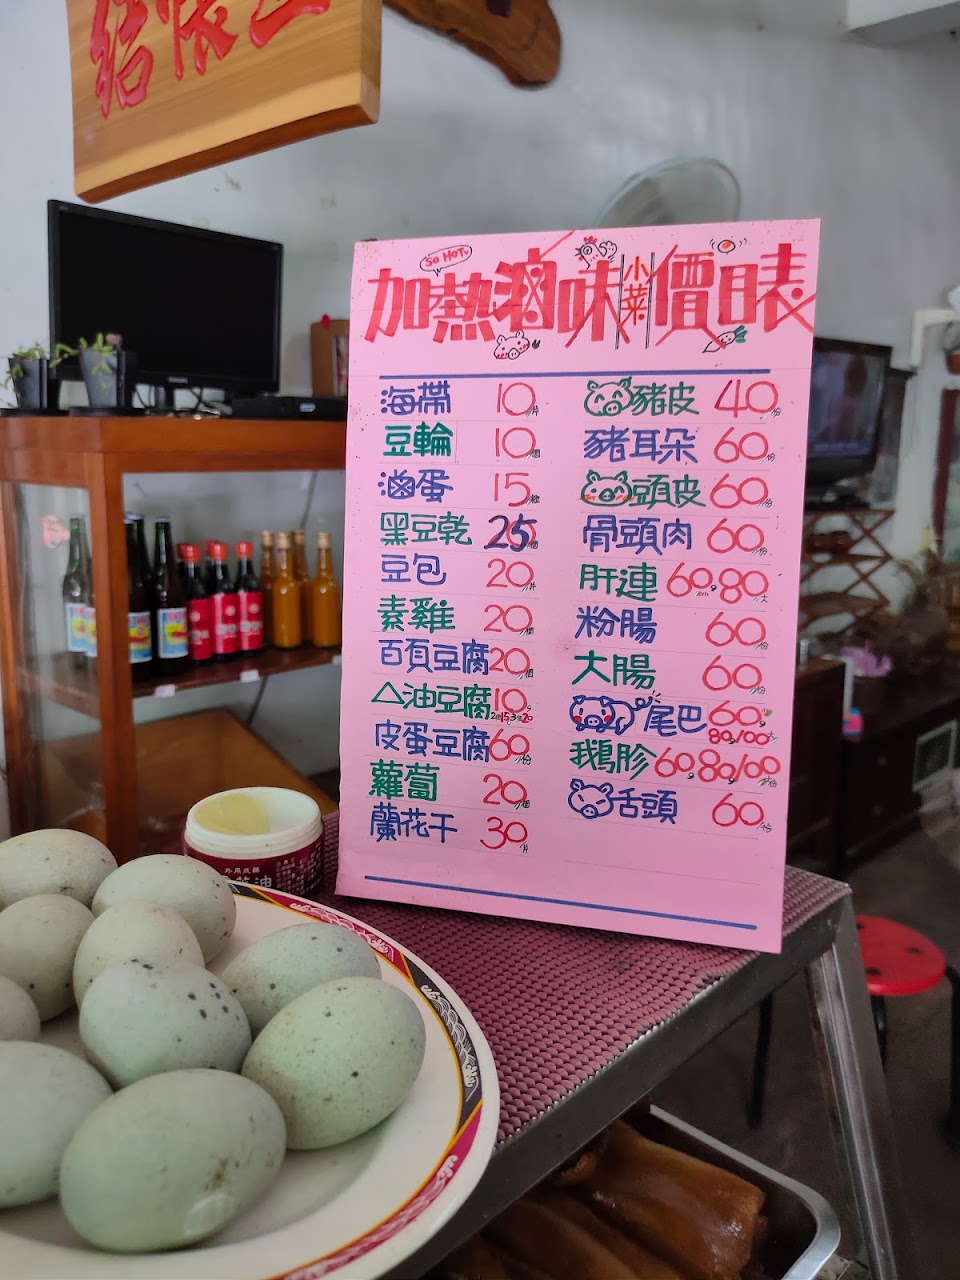 SO HOT
加熱滷味小菜價目表
海帶 10/片
豆輪 10/個
滷蛋 15/粒
黑豆乾 25/個
豆包 20/片
素雞 20/個
百頁豆腐 20/個
△油豆腐 10, 2個15, 3個20
皮蛋豆腐 60/份
蘿蔔 20/個
蘭花干 30/片
豬皮 40/份
豬耳朵 60/份
頭皮 60/份
骨頭肉 60/份
肝連 60小, 80大
粉腸 60/份
大腸 60/份
尾巴 60小, 80, 100大
鵝胗 60, 80, 100
舌頭 60/份
外用紙類